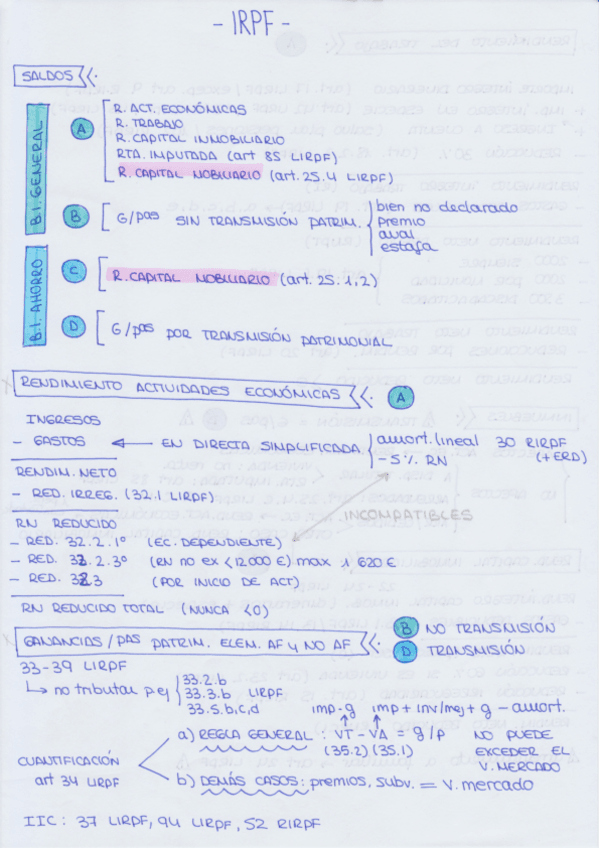 - IRPF -
SALDOS
B.I. GENERAL
A
R. ACT. ECONÓMICAS
R. TRABAJO
R. CAPITAL INMOBILIARIO
RTA. IMPUTADA (art 85 LIRPF)
R. CAPITAL MOBILIARIO (art. 25.4 LIRPF)
B
G/pas SIN TRANSMISIÓN PATRIM.
bien no declarado
premio
aval
estafa
B.I. AHORRO
C
R. CAPITAL MOBILIARIO (art. 25.1,2)
D
G/pas POR TRANSMISIÓN PATRIMONIAL
RENDIMIENTO ACTIVIDADES ECONÓMICAS
A
INGRESOS
- GASTOS ← EN DIRECTA SIMPLIFICADA
amort. lineal 30 RIRPF
- 5% RN (+ERD)
RENDIM. NETO
- RED. IRREG. (32.1 LIRPF)
INCOMPATIBLES
RN REDUCIDO
- RED. 32.2.1º (EC. DEPENDIENTE)
- RED. 32.2.3º (RN no ex <12.000 €) max 1.620 €
- RED. 32.3 (POR INICIO DE ACT)
RN REDUCIDO TOTAL (NUNCA <0)
GANANCIAS/PAS PATRIM. ELEM. AF y NO AF
B NO TRANSMISIÓN
D TRANSMISIÓN
33-39 LIRPF
↳ no tributar p ej
33.2.b
33.3.b LIRPF
33.5.b,c,d
imp-g imp + inv/mej + g - amort.
CUANTIFICACIÓN
art 34 LIRPF
a) REGLA GENERAL : VT - VA = g/p
(35.2) (35.1)
NO PUEDE
EXCEDER EL
V. MERCADO
b) DEMÁS CASOS : premios, subv. = V. mercado
IIC : 37 LIRPF, 94 LIRPF, 52 RIRPF